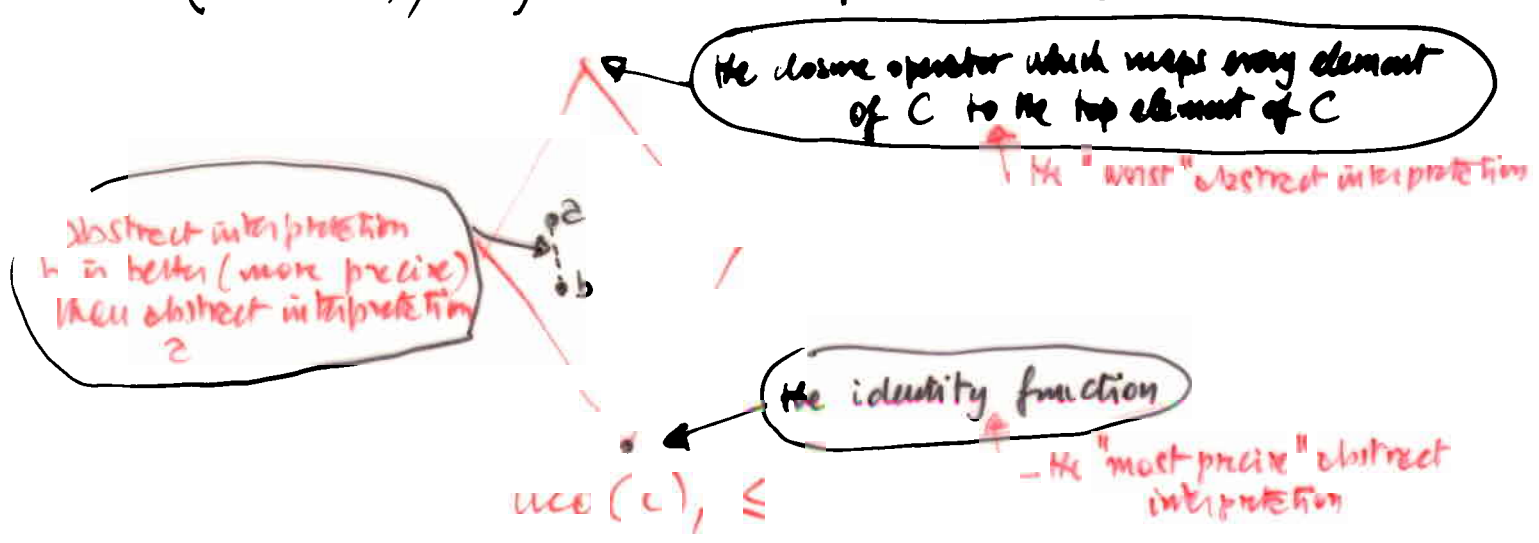 the closure operator which maps every element
of C to the top element of C
the "worst" abstract interpretation
a
abstract interpretation
b is better (more precise)
than abstract interpretation
a
b
the identity function
the "most precise" abstract
interpretation
uco (C), ≤